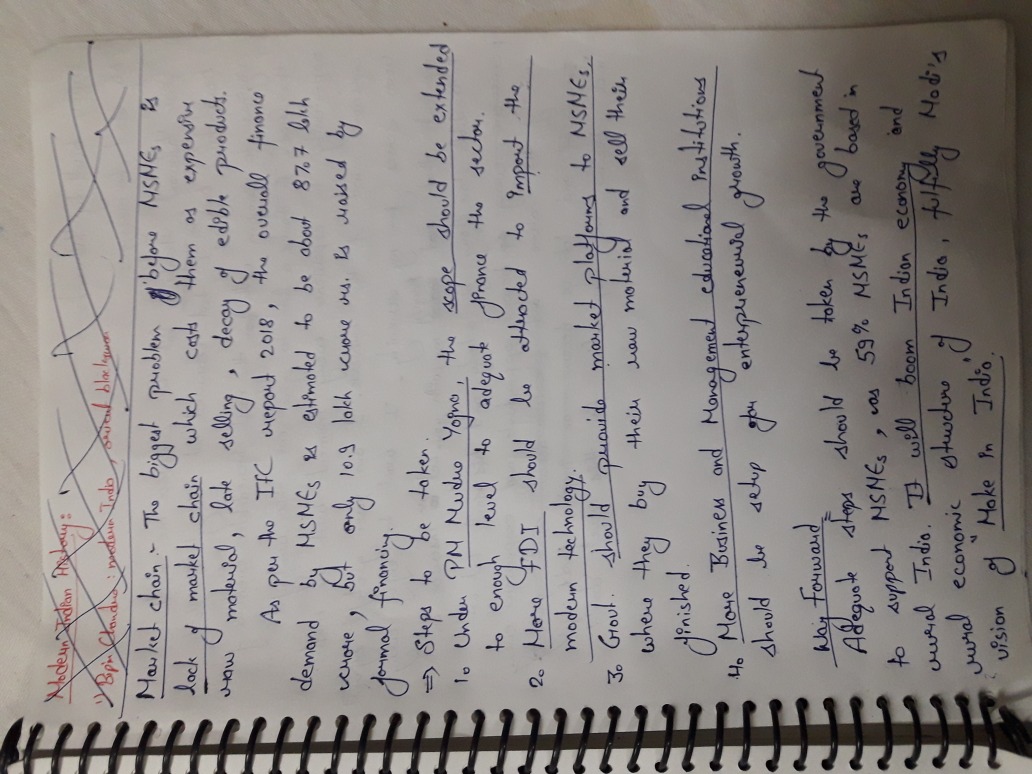 Modern Indian History:
1) Bipin Chandra: modern India, orient blackswan
Market chain:- The biggest problem before MSMEs is
lack of market chain which costs them as expensive
raw material, late selling, decay of edible products.
As per the IFC report 2018, the overall finance
demand by MSMEs is estimated to be about 87.7 lakh
crore, but only 10.9 lakh crore rs. is raised by
formal financing.
⇒ Steps to be taken.
1. Under PM Mudra Yojna, the scope should be extended
to enough level to adequate finance the sector.
2. More FDI should be attracted to import the
modern technology.
3. Govt. should provide market platforms to MSMEs
where they buy their raw material and sell their
finished.
4. More Business and Management educational institutions
should be setup for enterpreneurial growth.
Way Forward
Adequate steps should be taken by the government
to support MSMEs, as 59% MSMEs are based in
rural India. It will boom Indian economy and
rural economic structure of India, fulfily Modi's
vision of "Make in India".